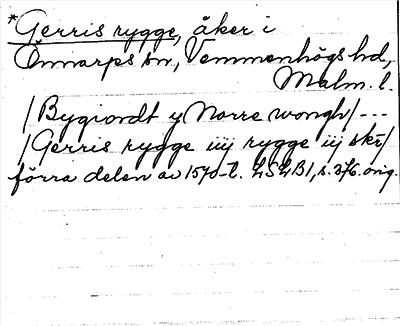 *Gerris rygge, åker i
Önnarps sn, Vemmenhögs hd,
Malm. l.
/Bygiordt y Norre wongh/---
/Gerris rygge iiij rygge iij skr/
förra delen av 1570-t. LSLB1, s. 376. orig.